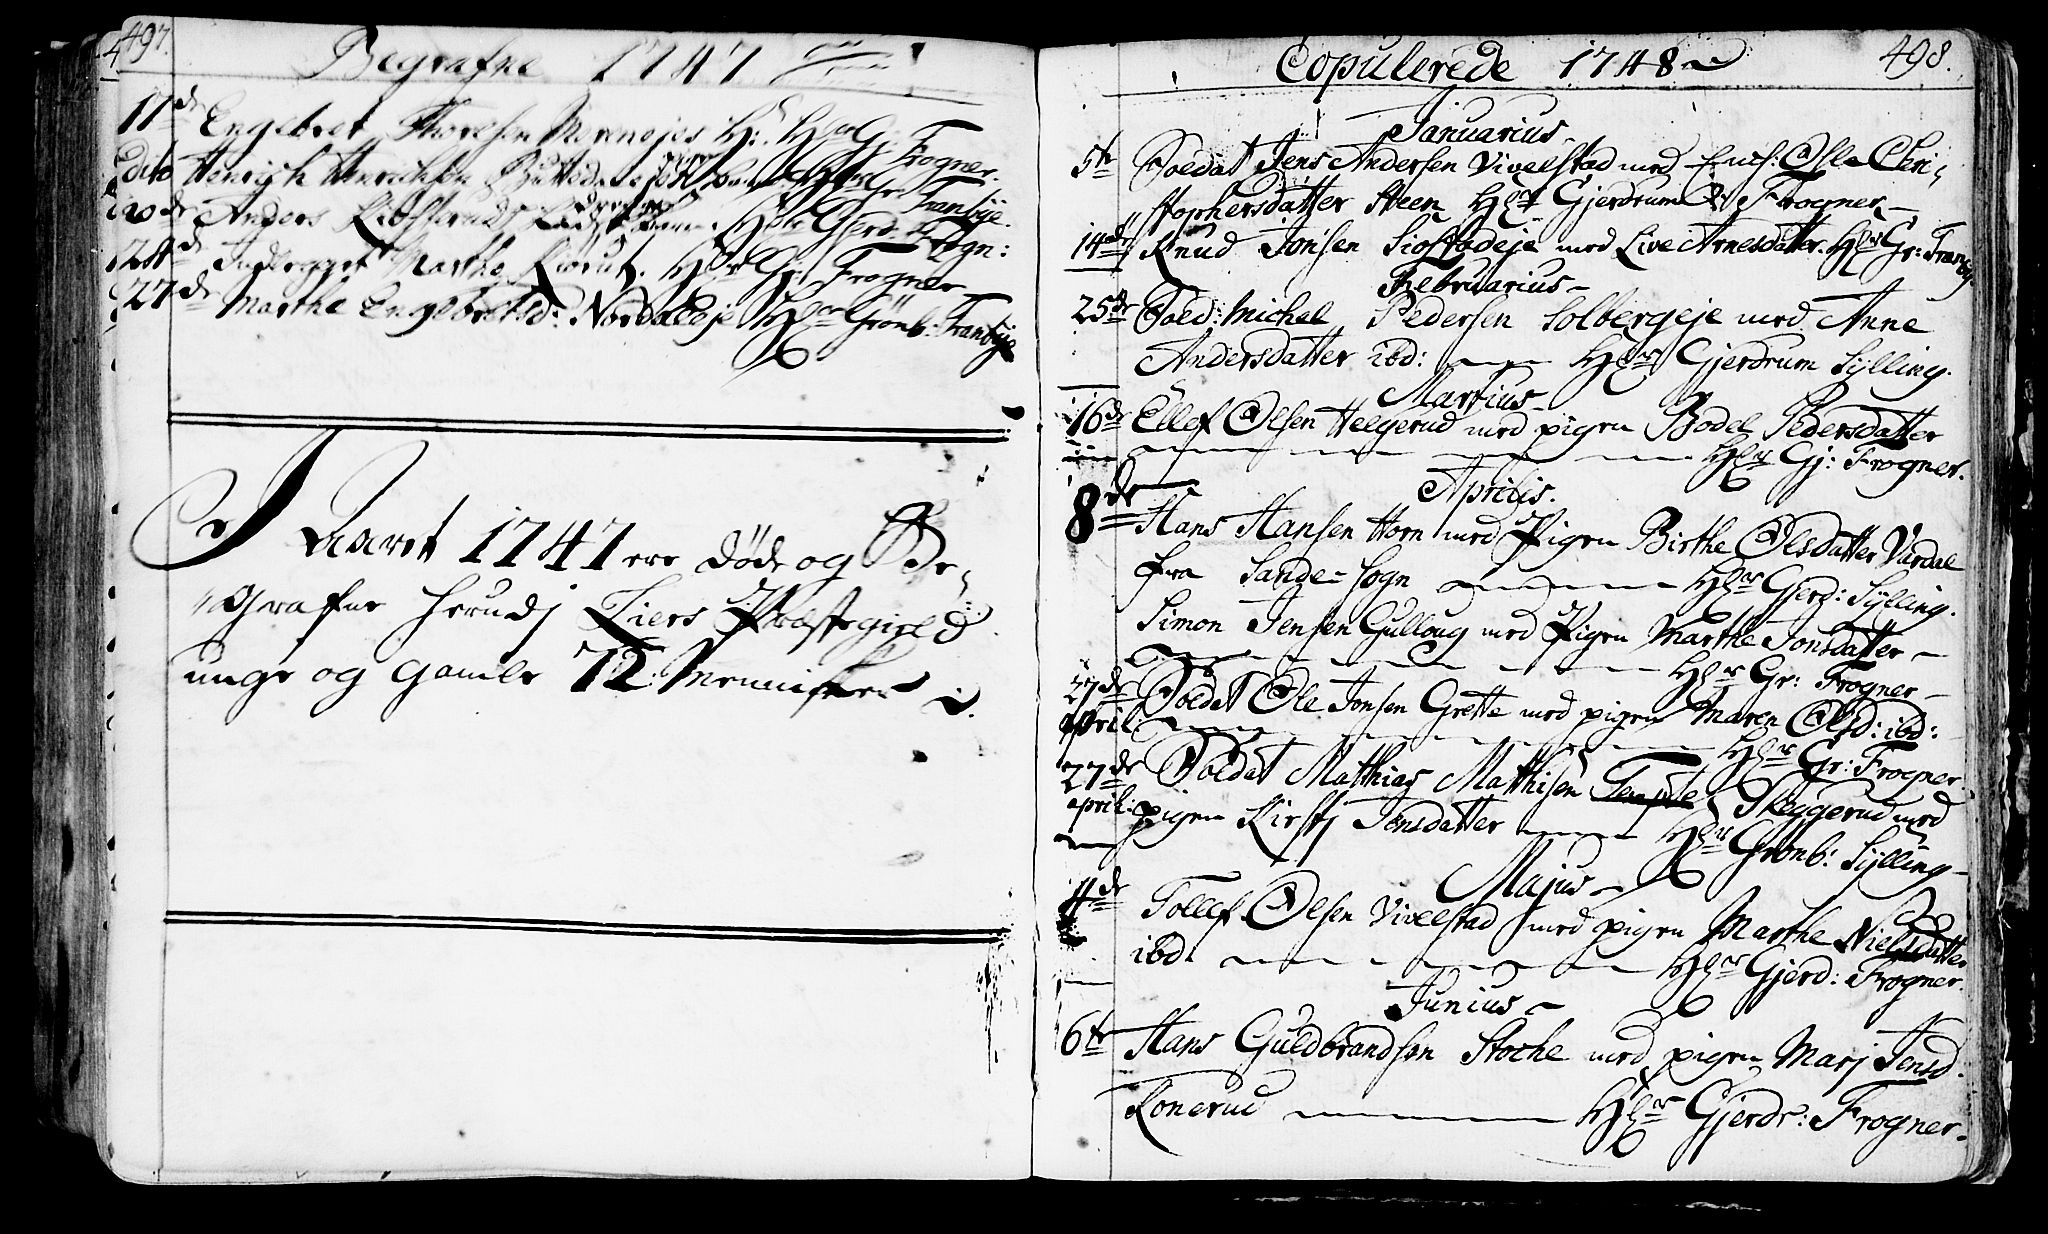 497.
Begrafne 1747
17de Engebret Thoresen Morenejes H: Hr Gr: Frogner.
dito Henrich Henrichsen
20de Anders Gjerd: Frogn:
24de Marthe Hr Gr: Frogner
27de Marthe Engebretsd: Nordaleje Hr Grönb: Tranbye
I Aaret 1747 ere döde og Be-
grafne herudj Liers Præstegield
unge og gamle 72: Mennisker
498.
Copulerede 1748
Januarius
5te Soldat Jens Andersen Vivelstad med Chri-
stophersdatter Steen Hr Gjerdrum Frogner
14de Knud Jonsen med Live Arnesdatter. Hr Gr: Tranby
Februarius
25de Sold: Michel Pedersen Solbergeje med Anne
Andersdatter ibd: Hr Gjerdrum Sylling.
Martius
16de Ellef Olsen Helgerud med pigen Bodel Pedersdatter
Hr Gj: Frogner.
Aprilis.
8de Hans Hansen Horn med Pigen Birthe Olsdatter Vardal
fra Sande-Sogn Hr Gjerd: Sylling.
Simon Jensen Gulloug med Pigen Marthe Jonsdatter
Hr Gr: Frogner
27de Soldat Ole Jonsen Grette med pigen Maren Olsd: ibd:
april Hr Gr: Frogner
27de Soldat Matthias Matthisen Skeggerud med
april: pigen Kirstj Jensdatter Hr Grönb: Sylling
Majus
4de Tollef Olsen Vivelstad med pigen Marthe Nielsdatter
ibd. Hr Gjerd: Frogner.
Junius
6te Hans Guldbrandsen Stoche med pigen Marj Jensd.
Fonerud Hr Gjerdr: Frogner.